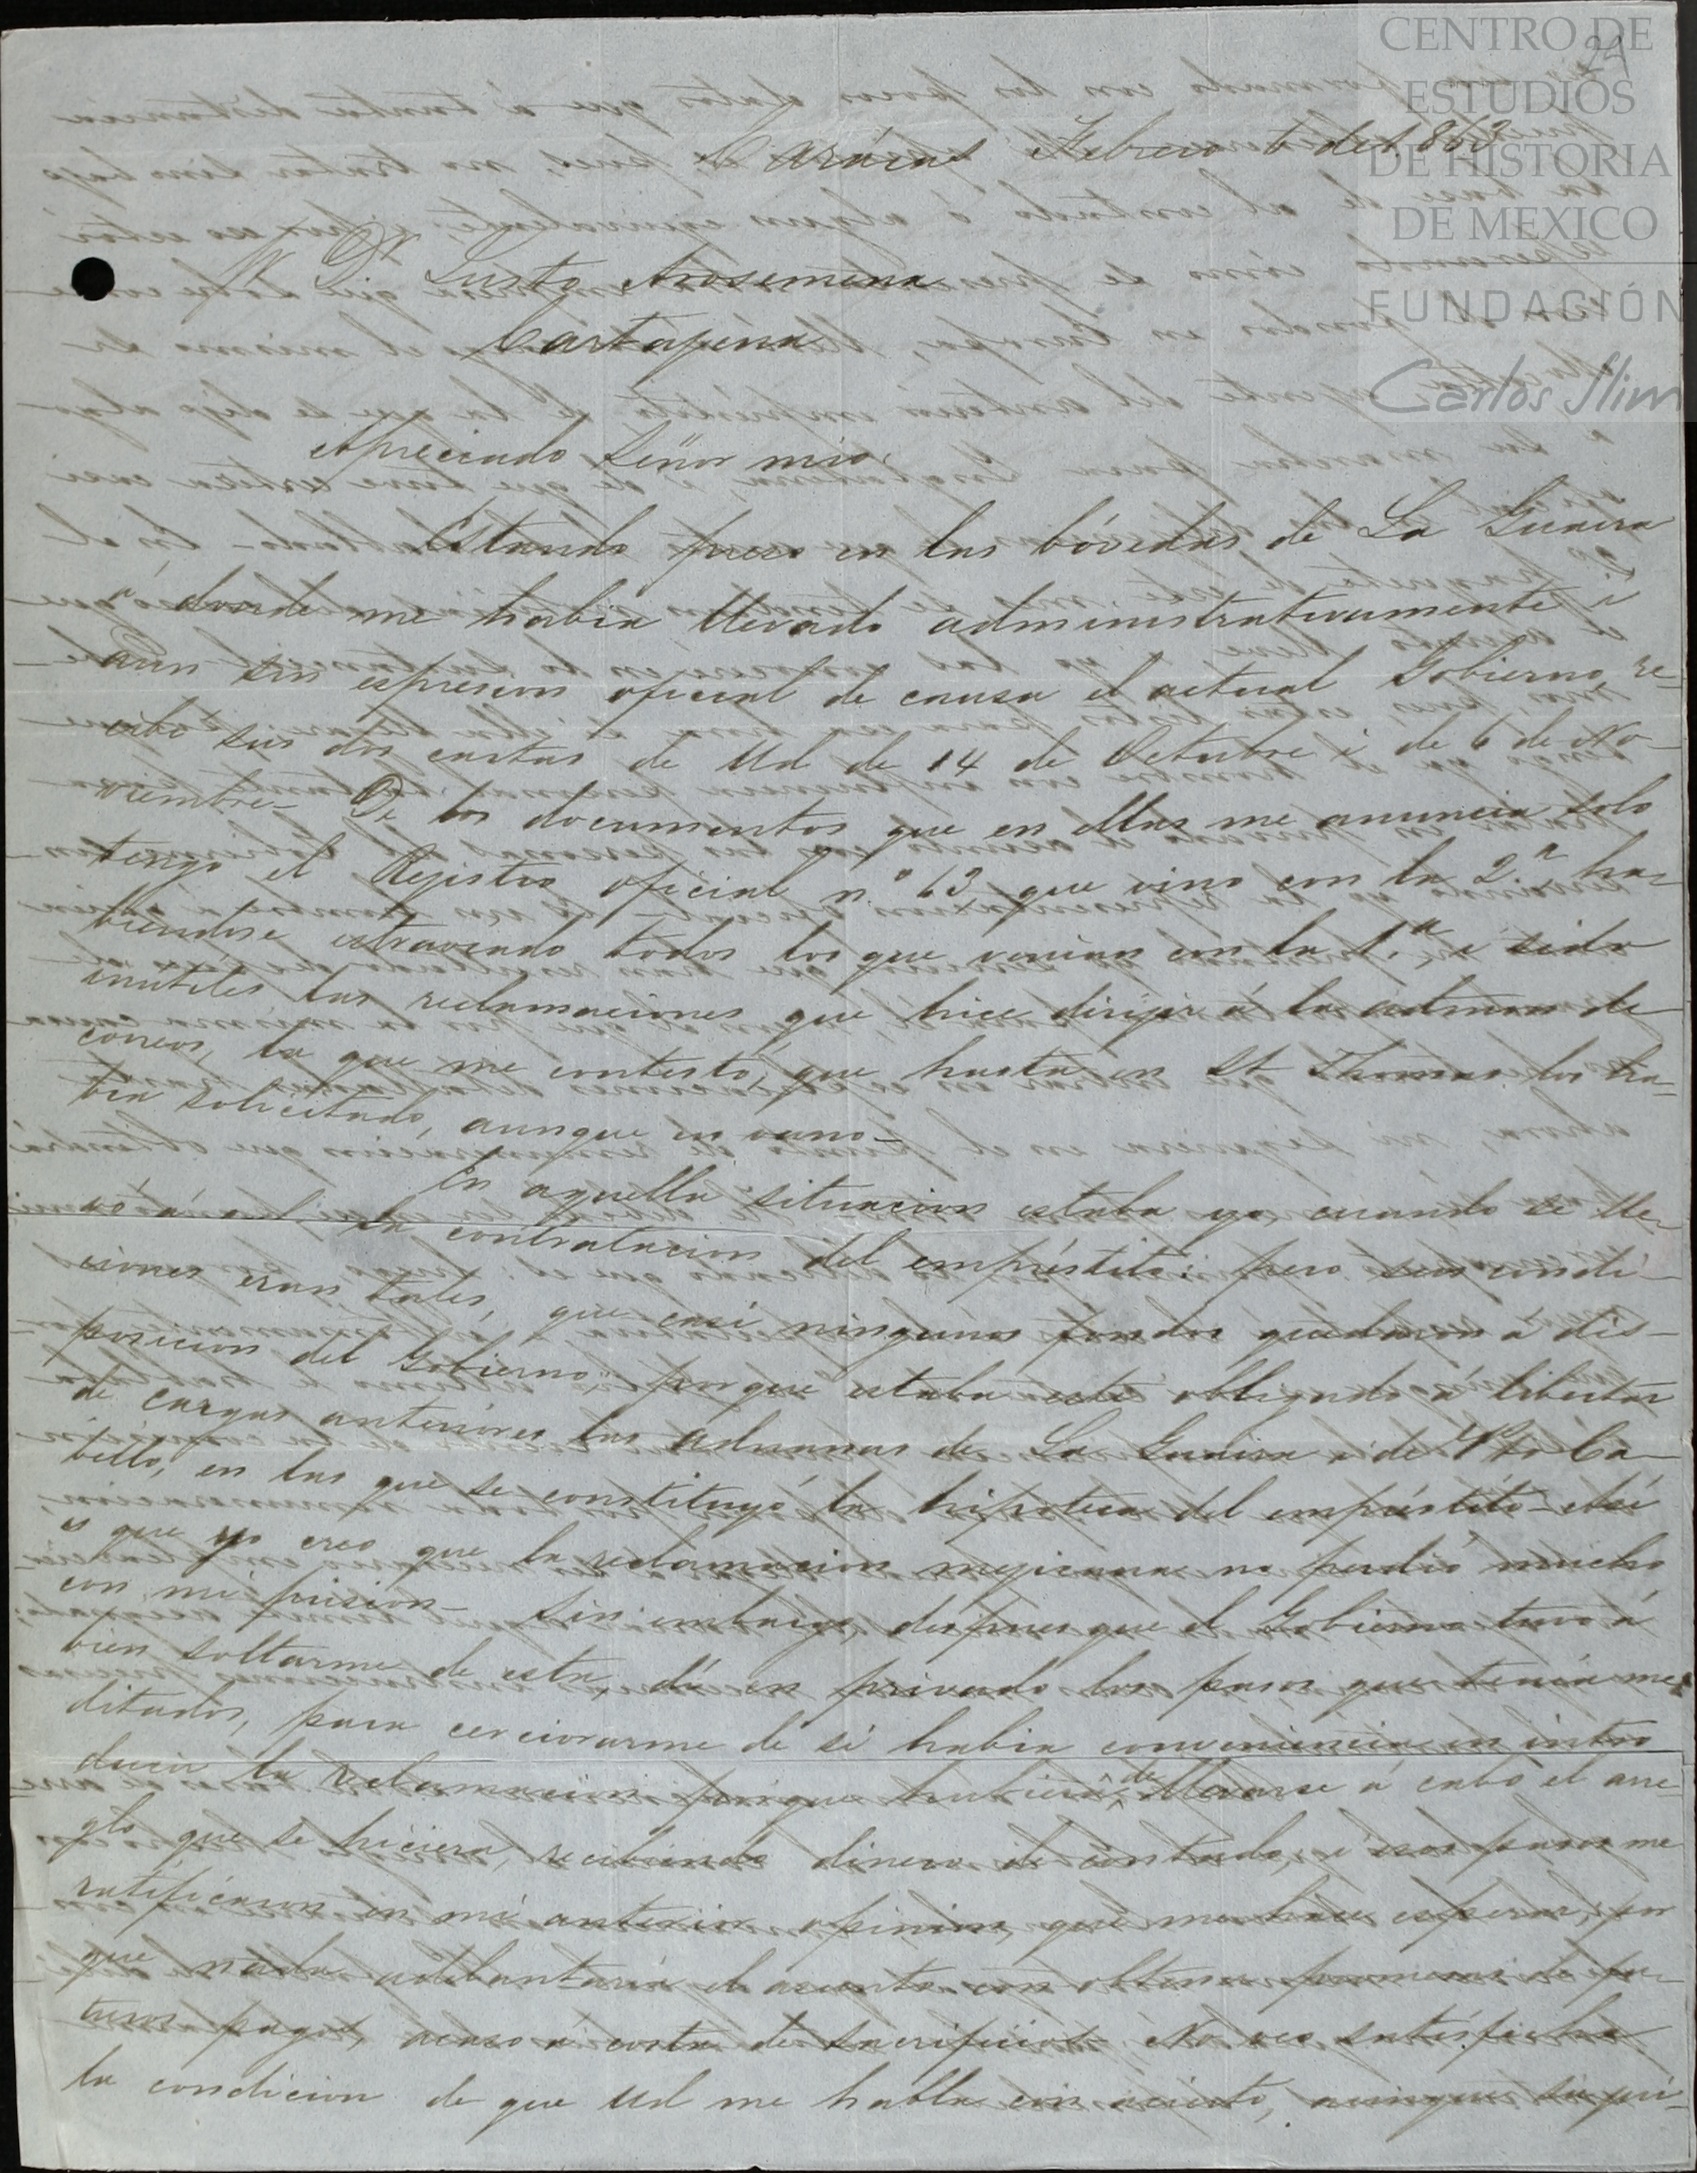 CENTRO DE
ESTUDIOS
DE HISTORIA
DE MEXICO
FUNDACIÓN
Carlos Slim
29
Carácas Febrero 6 de 1863
Sr Dr Justo Arosemena
Cartajena
Apreciado Señor mio.
Estando preso en las bóvedas de La Guaira
á donde me habia llevado administrativamente i
aun sin espresion oficial de causa el actual Gobierno, re-
cibí sus dos cartas de Ud de 14 de Octubre i de 6 de No-
viembre- De los documentos que en ellas me anuncia solo
tengo el Rejistro oficial n.º 63 que vino con la 2.ª ha-
biendose estraviado todos los que venian con la 1.ª, i sido
inútiles las reclamaciones que hice dirijir á la admon de
correos, la que me contestó, que hasta en St Thomas los ha-
bia solicitado, aunque en vano-
En aquella situacion estaba yo, cuándo se lle-
vó á cabo la contratacion del empréstito: pero sus condi-
ciones eran tales, que casi ningunos fondos quedaron á dis-
posicion del Gobierno, porque estaba este obligado á libertar
de cargas anteriores las aduanas de La Guaira i de Pto Ca-
bello, en las que se constituyó la hipoteca del empréstito- Así
es que yo creo que la reclamacion mejicana no perdió mucho
con mi prision- Sin embargo, despues que el Gobierno tuvo á
bien soltarme de esta, dí en privado los pasos que tenia me-
ditados, para cerciorarme de si habia conveniencia en intro
ducir la reclamacion porque hubiera de llevarse á cabo el arre-
glo que se hiciera, recibiendo dinero de contado, i esos pasos me
ratificaron en mi anterior opinion, que me hace esperar, por
que nada adelantaria el asunto con obtener promesas de fu-
turos pagos, acaso á costa de sacrificios- No veo satisfecha
la condicion de que Ud me habla con acierto, aunque su pri-